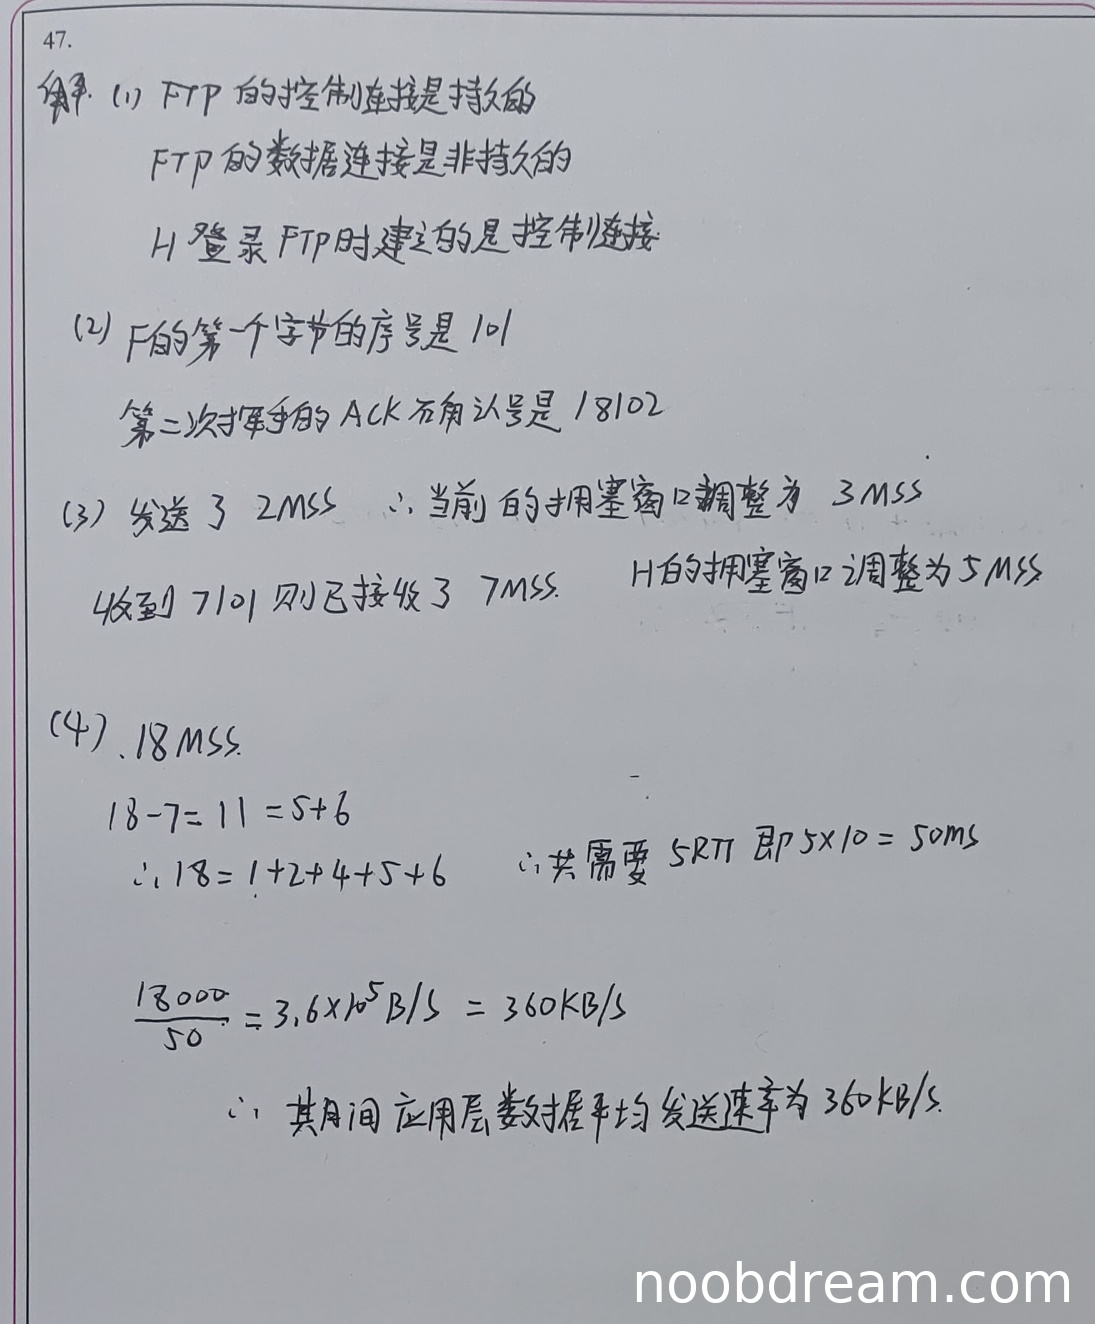 47.
解. (1) FTP 的控制连接是持久的
FTP 的数据连接是非持久的
H 登录 FTP时建立的是控制连接
(2) F的第一个字节的序号是 101
第二次挥手的 ACK 确认号是 18102
(3) 发送了 2MSS ∴当前的拥塞窗口调整为 3MSS
收到 7101 则已接收了 7MSS. H的拥塞窗口调整为 5MSS
(4) .18MSS.
18-7=11=5+6
∴18=1+2+4+5+6 ∴共需要 5RTT 即 5×10=50ms
18000/50 = 3.6×10⁵B/S = 360KB/s
∴ 其间应用层数据平均发送速率为 360KB/s.
noobdream.com